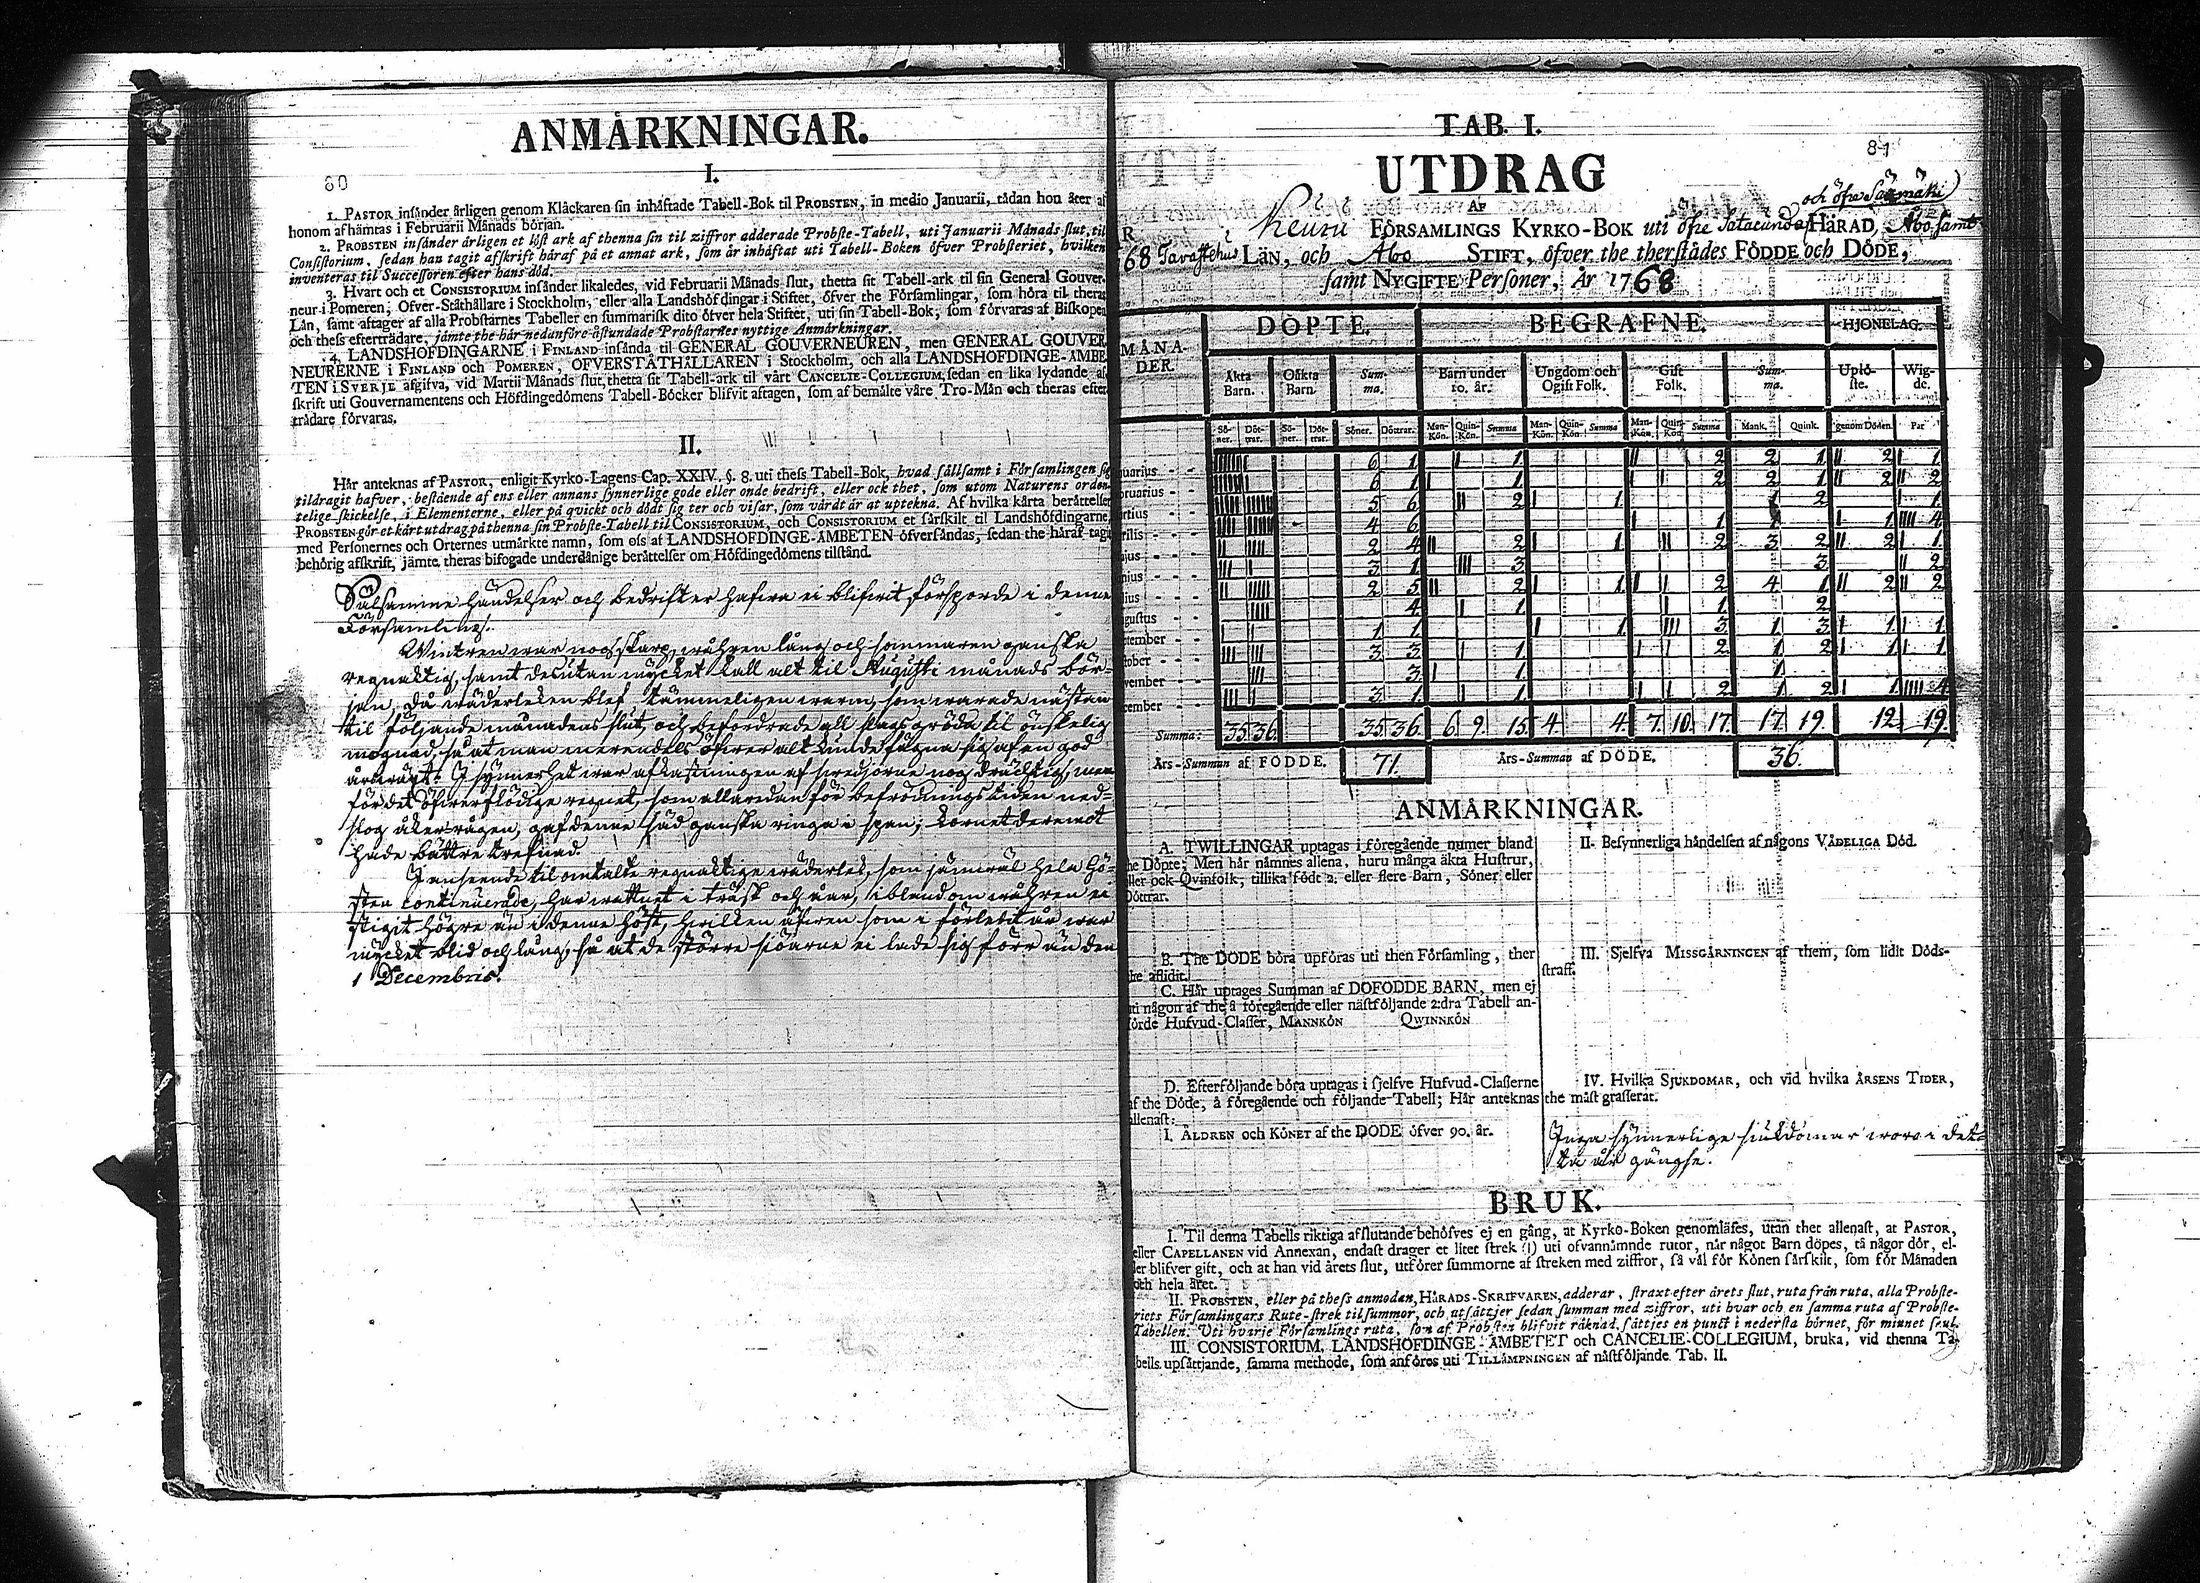 ANMÄRKNINGAR.
80
I.
1. PASTOR insänder årligen genom Klåckaren sin inhäftade Tabell-Bok til PROBSTEN, in medio Januarii, tädan hon åter af
honom afhämras i Februarii Månads början.
2. PROBSTEN insänder årligen et löst ark af thenna sin til ziffror adderade Probste-Tabell, uti Januarii Månads slut, til
Consistorium, sedan han tagit afskrift häraf på et annat ark, som är inhäftat uti Tabell-Boken öfver Probsteriet, hvilken
inventeras til Successoren efter hans död.
3. Hvart och et CONSISTORIUM insänder likaledes, vid Februarii Månads slut, thetta sit Tabell-ark til sin General Gouver-
neur i Pomeren, Öfver-Ståthållare i Stockholm, eller alla Landshöfdingar i Stiftet, öfver the Församlingar, som höra til theras
Län, samt aftager af alla Probstarnes Tabeller en summarisk dito öfver hela Stiftet, uti sin Tabell-Bok, som förvaras af Biskopen
och thess efterträdare, jämte the här nedanföre åstundade Probstarnes nyttige Anmärkningar.
4. LANDSHÖFDINGARNE i FINLAND insända til GENERAL GOUVERNEUREN, men GENERAL GOUVER-
NEURERNE i FINLAND och POMEREN, ÖFVERSTÅTHÅLLAREN i Stockholm, och alla LANDSHÖFDINGE-ÄMBE-
TEN i SVERJE afgifva, vid Martii Månads slut, thetta sit Tabell-ark til vårt CANCELIE-COLLEGIUM, sedan en lika lydande af-
skrift uti Gouvernamentens och Höfdingedömens Tabell-Böcker blifvit aftagen, som af bemälte våre Tro-Män och theras efter-
trädare förvaras.
II.
Här anteknas af PASTOR, enligit Kyrko-Lagens Cap. XXIV. §. 8. uti thess Tabell-Bok, hvad sällsamt i Församlingen sig
tildragit hafver, bestående af ens eller annans synnerlige gode eller onde bedrift, eller ock thet, som utom Naturens orden-
telige skickelse, i Elementerne, eller på quickt och dödt sig ter och visar, som värdt är at uptekna. Af hvilka kårta berättelser
PROBSTEN gör et kårt utdrag på thenna sin Probste-Tabell til CONSISTORIUM, och CONSISTORIUM et särskilt til Landshöfdingarne,
med Personernes och Orternes utmärkte namn, som oss af LANDSHÖFDINGE-ÄMBETEN öfversändas, sedan the häraf tagit
behörig afskrift, jämte theras bifogade underdånige berättelser om Höfdingedömens tilstånd.
Sälsamme händelser och bedrifter hafwa ei blifwit försporde i denne
Församling.
Wintren war nog skarp, wåhren lång och sommaren ganska
regnaktig, samt desutan mycket kall alt til Augusti månads bör-
jan, då wäderleken blef tämmeligen warm, som warade nästan
til följande månadens slut, och befordrade all slags gröda til önskelig
mognad, så at man merendels öfwer alt kunde fägna sig af en god
årswäxt. I synnerhet war afkastningen af swedjorne nog dräcktig, men
för det öfwerflödige regnet, som allaredan för befrodnings tiden ned-
slog åker-rågen, gaf denne säd ganska ringa i span; kornet deremot
hade bättre trefnad.
I anseende til omtalte regnaktige wäderlek, som jämwäl hela hö-
sten continuerade, har wattnet i träsk och åar, ibland om wåhren ei
stigit högre än i denne höst, hwilken äfwen som i förledit år war
mycket blid och lång, så at de större siöarne ei lade sig förr än den
1 Decembris.
TAB. I.
81
UTDRAG
AF
och öfre Säxmäki
Keuru FÖRSAMLINGS KYRKO-BOK uti öfre Satacunda HÄRAD, Åbo samt
68 Tavastehus LÄN, och Åbo STIFT, öfver the therstädes FÖDDE och DÖDE,
samt NYGIFTE Personer, År 1768
MÅNA-DER. DÖPTE. BEGRAFNE. HJONELAG.
Äkta Barn. Oäkta Barn. Summa. Barn under 10. år. Ungdom och Ogift Folk. Gift Folk. Summa. Uplöste. Wigde.
Söner. Döttrar. Söner. Döttrar. Söner. Döttrar. Man-Kön. Quin-Kön. Summa Man-Kön. Quin-Kön. Summa Man-Kön. Quin-Kön Summa Mank. Quink. genom Döden. Par
nuarius 6 1 1 2 2 1 2 1
bruarius 6 1 1 2 2 1 2 2
artius 5 6 2 1 1 2 1
prilis 4 6 1 1 1 4
ajus 2 4 2 1 2 3 2 2 1
nius 3 1 3 3 2
lius 2 5 2 1 2 4 1 2 2
gustus 4 1 1 2
ptember 1 1 1 3 1 3 1 1
tober 3 3 1 2 1 2 1 1
vember 3 1 1
cember 3 1 1 2 1 2 1 4
Summa: 35 36 35 36 6 9 15 4 4 7 10 17 17 19 12 19
Års-Summan af FÖDDE. 71. Års-Summan af DÖDE. 36.
ANMÄRKNINGAR.
A. TWILLINGAR uptagas i föregående numer bland
the Döpte; Men här nämnes allena, huru många äkta Hustrur,
eller ock Qvinfolk, tillika födt 2. eller flere Barn, Söner eller
Döttrar.
B. The DÖDE böra upföras uti then Församling, ther
the aflidit.
C. Här uptages Summan af DÖFÖDDE BARN, men ej
uti någon af the å föregående eller nästföljande 2:dra Tabell an-
förde Hufvud-Classer, MANNKÖN QWINNKÖN
D. Efterföljande böra uptagas i sjelfve Hufvud-Classerne
af the Döde, å föregående och följande Tabell; Här anteknas
allenast:
I. ÅLDREN och KÖNET af the DÖDE öfver 90. år.
II. Besynnerliga händelsen af någons VÅDELIGA Död.
III. Sjelfva MISSGÄRNINGEN af them, som lidit Döds-
straff.
IV. Hvilka SJUKDOMAR, och vid hvilka ÅRSENS TIDER,
the mäst grasserat.
Inga synnerlige siukdomar woro i det-
ta år gängse.
BRUK.
I. Til denna Tabells riktiga afslutande behöfves ej en gång, at Kyrko-Boken genomläses, utan thet allenast, at PASTOR,
eller CAPELLANEN vid Annexan, endast drager et litet strek (|) uti ofvannämnde rutor, när något Barn döpes, tå någor dör, el-
ler blifver gift, och at han vid årets slut, utförer summorne af streken med ziffror, så väl för Könen särskilt, som för Månaden
och hela året.
II. PROBSTEN, eller på thess anmodan, HÄRADS-SKRIFVAREN, adderar, straxt efter årets slut, ruta från ruta, alla Probste-
riets Församlingars Rute-strek til summor, och utsättjer sedan summan med ziffror, uti hvar och en samma ruta af Probste-
Tabellen. Uti hvarje Församlings ruta, som af Probsten blifvit räknad, sättjes en punct i nedersta hörnet, för minnet skul.
III. CONSISTORIUM, LANDSHÖFDINGE-ÄMBETET och CANCELIE-COLLEGIUM, bruka, vid thenna Ta-
bells upsättjande, samma methode, som anföres uti TILLÄMPNINGEN af nästföljande Tab. II.